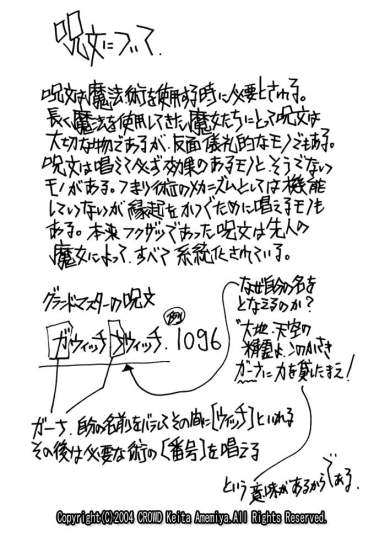 呪文について.
呪文は魔法術を使用する時に必要とされる。
長く魔法を使用してきた魔女たちにとって呪文は
大切な物であるが、反面儀礼的なモノでもある。
呪文は唱えて必ず効果のあるモノと、そうでない
モノがある。つまり術のメカニズムとしては機能
していないが縁起をかつぐために唱えるモノも
ある。本来フクザツであった呪文は先人の
魔女によって、すべて系統化されている。
グランドマスターの呪文
ガウィッチ ラウィッチ. 1096
なぜ自分の名を
となえるのか?
"大地・天空の
精霊よ、この小さき
ガーラに力を貸したまえ!
ガーラ、自分の名前をバラしてその間に[ウィッチ]といれる
その後は必要な術の[番号]を唱える
という意味があるからである.
Copyright(C)2004 CROWD Keita Amemiya.All Rights Reserved.